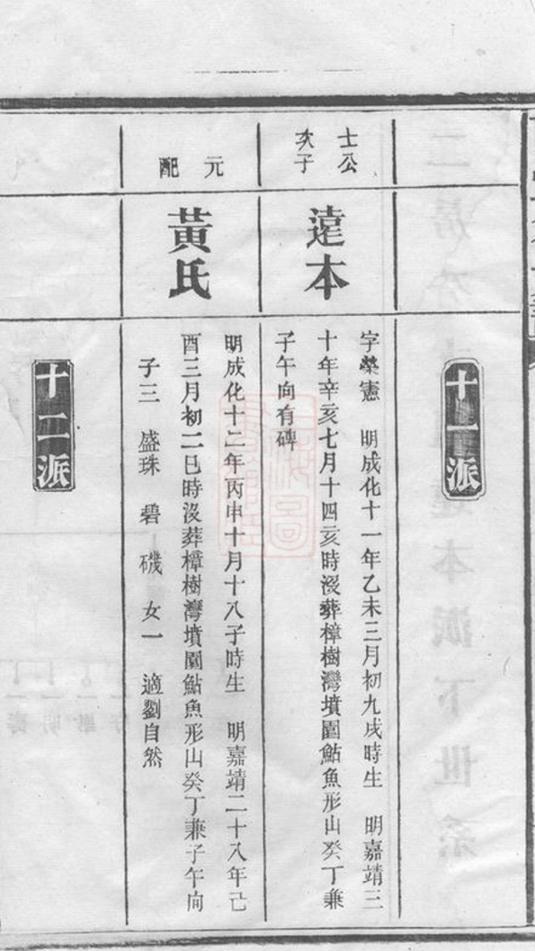 十一派
士公
次子
達本
字榮憲　明成化十一年乙未三月初九戌時生　明嘉靖三
十年辛亥七月十四亥時沒葬樟樹灣墳園鮎魚形山癸丁兼
子午向有碑
元配
黃氏
明成化十二年丙申十月十八子時生　明嘉靖二十八年己
酉三月初二巳時沒葬樟樹灣墳園鮎魚形山癸丁兼子午向
子三　盛珠　碧　磯　女一　適劉自然
十二派